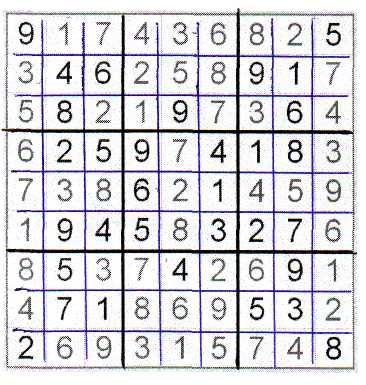 9 1 7 4 3 6 8 2 5
3 4 6 2 5 8 9 1 7
5 8 2 1 9 7 3 6 4
6 2 5 9 7 4 1 8 3
7 3 8 6 2 1 4 5 9
1 9 4 5 8 3 2 7 6
8 5 3 7 4 2 6 9 1
4 7 1 8 6 9 5 3 2
2 6 9 3 1 5 7 4 8